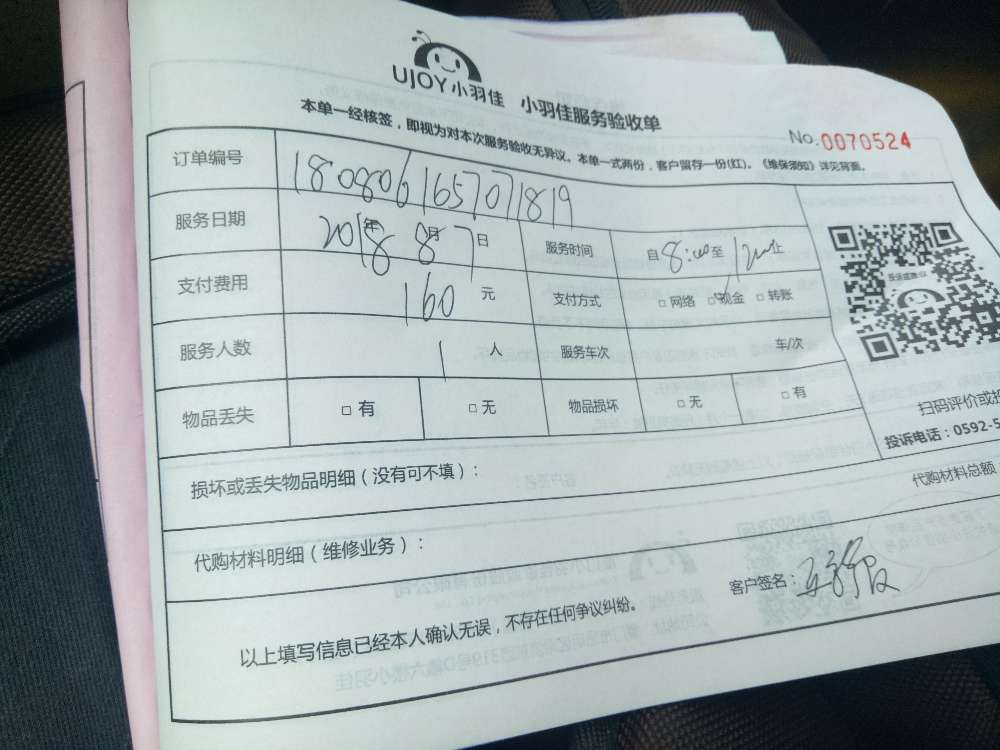 UJOY小羽佳 小羽佳服务验收单
本单一经核签，即视为对本次服务验收无异议。本单一式两份，客户留存一份(红)。《维保须知》详见背面。
No.0070524
订单编号 1808061657071819
服务日期 2018年8月7日 服务时间 自8:00至1200止
支付费用 160元 支付方式 □网络 □现金 □转账
服务人数 1人 服务车次 车/次
物品丢失 □有 □无 物品损坏 □无 □有
扫码评价或投
投诉电话：0592-5
损坏或丢失物品明细（没有可不填）：
代购材料总额
代购材料明细（维修业务）：
客户签名：
以上填写信息已经本人确认无误，不存在任何争议纠纷。